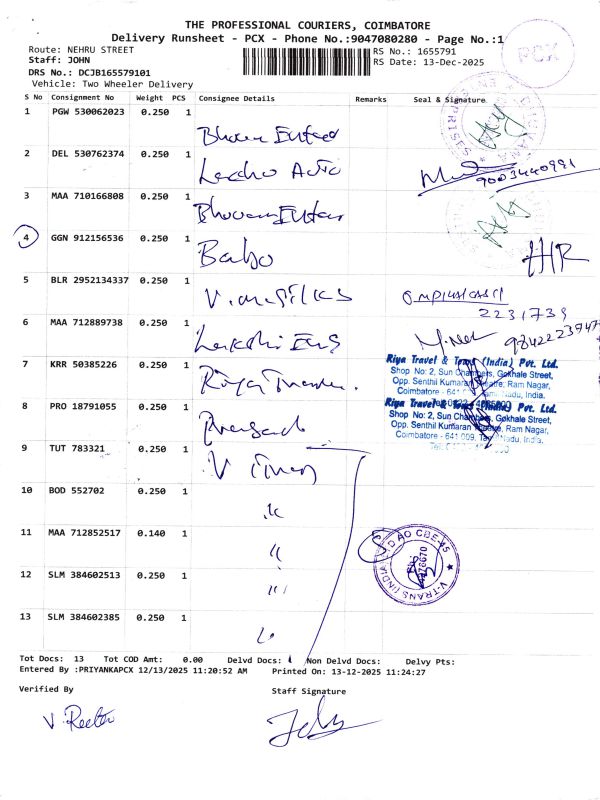 THE PROFESSIONAL COURIERS, COIMBATORE
Delivery Runsheet - PCX - Phone No.:9047080280 - Page No.:1
PCX
Route: NEHRU STREET
RS No.: 1655791
Staff: JOHN
RS Date: 13-Dec-2025
DRS No.: DCJB165579101
Vehicle: Two Wheeler Delivery
S No Consignment No Weight PCS Consignee Details Remarks Seal & Signature
1 PGW 530062023 0.250 1
2 DEL 530762374 0.250 1
9003440991
3 MAA 710166808 0.250 1
4 GGN 912156536 0.250 1 Babo
HR
5 BLR 2952134337 0.250 1
2231739
6 MAA 712889738 0.250 1
7 KRR 50385226 0.250 1
Riya Travel & Tours (India) Pvt. Ltd.
Shop No: 2, Sun Chambers, Gokhale Street,
Opp. Senthil Kumaran Theatre, Ram Nagar,
8 PRO 18791055 0.250 1 Prasad
Riya Travel & Tours (India) Pvt. Ltd.
Shop No: 2, Sun Chambers, Gokhale Street,
Opp. Senthil Kumaran Theatre, Ram Nagar,
Coimbatore - 641 009, Tamil Nadu, India.
9 TUT 783321 0.250 1 V Trans
10 BOD 552702 0.250 1 "
11 MAA 712852517 0.140 1 "
V-TRANS (INDIA) LTD AO CBE-45
12 SLM 384602513 0.250 1 "
13 SLM 384602385 0.250 1 "
Tot Docs: 13 Tot COD Amt: 0.00 Delvd Docs: Non Delvd Docs: Delvy Pts:
Entered By :PRIYANKAPCX 12/13/2025 11:20:52 AM Printed On: 13-12-2025 11:24:27
Verified By
Staff Signature
V. Reetha